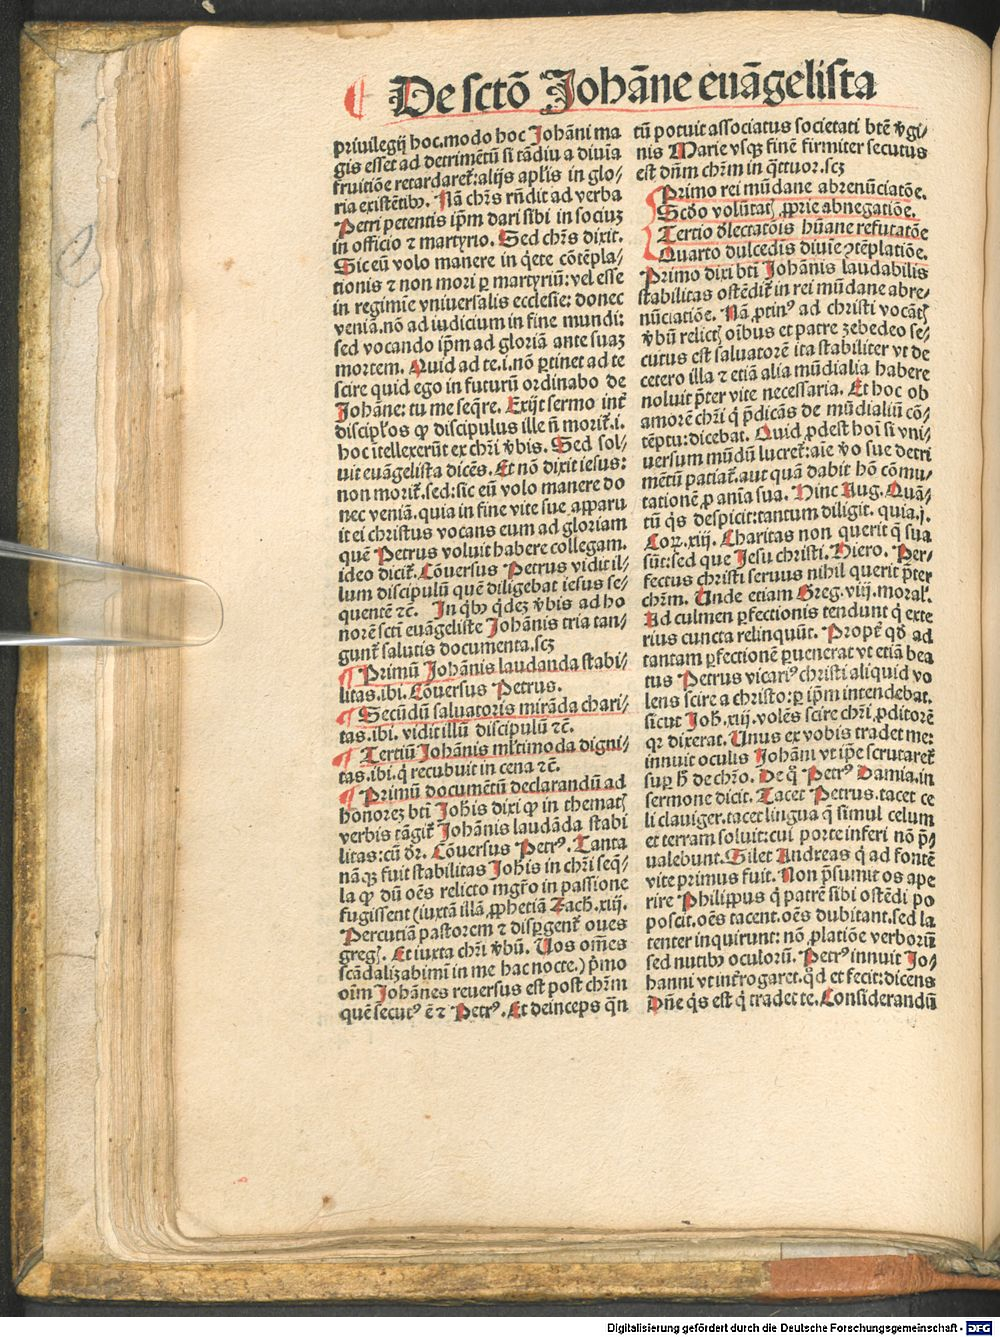 De sctō Johāne euāgelista
priuilegij hoc.modo hoc Johāni ma
gis esset ad detrimētū si tādiu a diuīa
fruitiōe retardareť:alijs aplis in glo⸗
ria existētibꝰ. Nā chr̄s rn̄dit ad verba
Petri petentis ip̄m dari sibi in sociuꝫ
in officio ⁊ martyrio. Sed chr̄s dixit.
Sic eū volo manere in q̇ete cōtēpla⸗
tionis ⁊ non mori ꝑ martyriū:vel esse
in regimīe vniuersalis ecclesie: donec
veniā.nō ad iudicium in fine mundi:
sed vocando ip̄m ad gloriā ante suaꝫ
mortem. Quid ad te.i.nō ꝑtinet ad te
scire quid ego in futurū ordinabo de
Johāne: tu me seq̄re. Exijt sermo int̄
discipl̄os ꝙ discipulus ille n̄ moriť.i.
hoc ītellexerūt ex chr̄i v̄bis. Sed sol⸗
uit euāgelista dicēs. Et nō dixit iesus:
non moriť.sed:sic eū volo manere do
nec veniā.quia in fine vite sue apparu
it ei christus vocans eum ad gloriam
quē Petrus voluit habere collegam.
ideo diciť. Cōuersus Petrus vidit il⸗
lum discipulū quē diligebat iesus se⸗
quentē ⁊c̄. In q̇bꝰ q̇deꝫ v̄bis ad ho
norē sctī euāgeliste Johānis tria tan⸗
gunť salutis documenta.scꝫ
¶ Primū Johānis laudanda stabi⸗
litas.ibi. Cōuersus Petrus.
¶ Secūdū saluatoris mirāda chari⸗
tas.ibi. vidit illū discipulū ⁊c̄.
¶ Tertiū Johānis ml̄timoda digni⸗
tas.ibi.q̇ recubuit in cena ⁊c̄.
¶ Primū documētū declarandū ad
honoreꝫ bt̄i Joh̄is dixi ꝙ in themaťꝭ
verbis tāgiť Johānis laudāda stabi
litas:cū dr̄. Cōuersus Petrꝰ. Tanta
nāqꝫ fuit stabilitas Joh̄is in chr̄i seq̄⸗
la ꝙ dū oēs relicto mgr̄o in passione
fugissent (iuxtā illā ꝓphetiā Zach̄.xiij.
Percutiā pastorem ⁊ dispgenť oues
gregꝭ. Et iuxta chr̄i v̄bū. Uos om̄es
scādalizabimī in me hac nocte.) pͥmo
oīm Johānes reuersus est post chr̄m
quē secutꝰ ē ⁊ Petrꝰ. Et deinceps q̄n
tū potuit associatus societati bt̄ē v̄gi⸗
nis Marie vsqꝫ finē firmiter secutus
est dn̄m chr̄m in q̄ttuor.scꝫ
Primo rei mūdane abrenūciatōe.
Scd̄o volūtatꝭ ꝓprie abnegatiōe.
Tertio dlectatōis hūane refutatōe
Quarto dulcedis diuīe ꝯtēplatiōe.
Primo dixi bt̄i Johānis laudabilis
stabilitas ostēdiť in rei mūdane abre⸗
nūciatiōe. Nā ꝓtinꝰ ad christi vocātꝭ
v̄bū relictꝭ oībus et patre zebedeo se⸗
cutus est saluatorē ita stabiliter vt de
cetero illa ⁊ etiā alia mūdialia habere
noluit p̄ter vite necessaria. Et hoc ob
amorē chr̄i q̇ p̄dicās de mūdialiū cō⸗
tēptu:dicebat. Quid ꝓdest hoī si vni⸗
uersum mūdū lucreť:aīe v̄o sue detri
mētū patiať.aut quā dabit hō cōmu⸗
tationē ꝓ anīa sua. Hinc Aug. Quā⸗
tū q̇s despicit:tantum diligit. quia.j.
Coꝝ.xiij. Charitas non querit q̄ sua
sūt:sed que Jesu christi. Hiero. Per⸗
fectus christi seruus nihil querit p̄ter
chr̄m. Unde etiam Greg.viij.moral̄.
Ad culmen ꝑfectionis tendunt q̇ exte
rius cuncta relinquūt. Propť qd̄ ad
tantam ꝑfectionē ꝑuenerat vt etiā bea
tus Petrus vicariꝰ christi aliquid vo
lens scire a christo:ꝑ ip̄m intendebat.
sicut Joh̄.xiij.volēs scire chr̄i ꝓditorē
qꝛ dixerat. Unus ex vobis tradet me:
innuit oculis Johāni vt ip̄e scrutareť
suꝑ h̄ de chr̄o. De q̊ Petrꝰ Damia.in
sermone dicit. Tacet Petrus.tacet ce
li clauiger.tacet lingua q̄ simul celum
et terram soluit:cui porte inferi nō p̄⸗
ualebunt. Silet Andreas q̇ ad fontē
vite primus fuit. Non p̄sumit os ape
rire Philippus q̇ patrē sibi ostēdi po
poscit.oēs tacent.oēs dubitant.sed la
tenter inquirunt: nō ꝓlatiōe verborū
sed nutibꝰ oculorū. Petrꝰ innuit Jo⸗
hanni vt inťrogaret.qd̄ et fecit:dicens
Dn̄e q̇s est q̇ tradet te. Considerandū
Digitalisierung gefördert durch die Deutsche Forschungsgemeinschaft - DFG